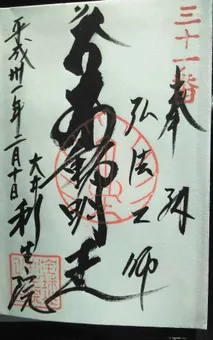 三十一番
奉拝
弘法大師
不動明王
大井
利生院
平成卅一年三月十日